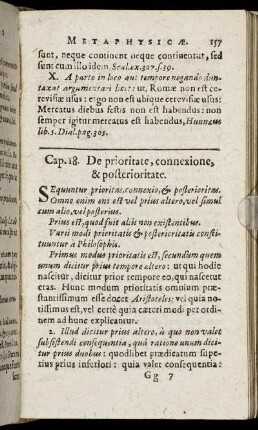 METAPHYSICÆ. 157
sunt, neque continent neque continentur, sed
sunt cum illo idem. Scal.ex.307.s.30.
X. A parte in loco aut tempore negando dun-
taxat argumentari licet: ut, Romæ non est ce-
revisiæ usus: ergo non est ubique cerevisiæ usus:
Mercatus diebus festis non est habendus: non
semper igitur mercatus est habendus, Hunnæus
lib.5. Dial.pag.305.
Cap.18. De prioritate, connexione,
& posterioritate.
SEquuntur prioritas, connexio, & posterioritas.
Omne enim ens est vel prius altero, vel simul
cum alio, vel posterius.
Prius est, quod fuit aliis non existentibus.
Varii modi prioritatis & posterioritatis consti-
tuuntur à Philosophis.
Primus modus prioritatis est, secundùm quem
unum dicitur prius tempore altero: ut qui hodie
nascitur, dicitur prior tempore eo, qui nascetur
cras. Hunc modum prioritatis omnium præ-
stantissimum esse docet Aristoteles; vel quia no-
tissimus est, vel certè quia cæteri modi per ordi-
nem ad hunc explicantur.
2. Illud dicitur prius altero, à quo non valet
subsistendi consequentia, quâ ratione unum dici-
tur prius duobus: quodlibet prædicatum supe-
rius prius inferiori: quia valet consequentia:
Gg 7